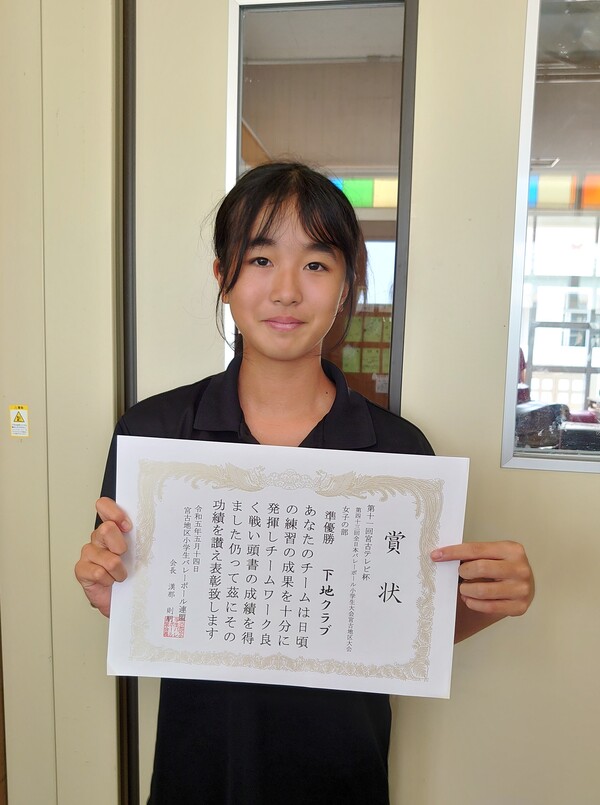 賞状
第十一回宮古テレビ杯
第四十三回全日本バレーボール小学生大会宮古地区大会
女子の部
準優勝 下地クラブ
あなたのチームは日頃
の練習の成果を十分に
発揮しチームワーク良
く戦い頭書の成績を得
ました仍って茲にその
功績を讃え表彰致します
令和五年五月十四日
宮古地区小学生バレーボール連盟
会長